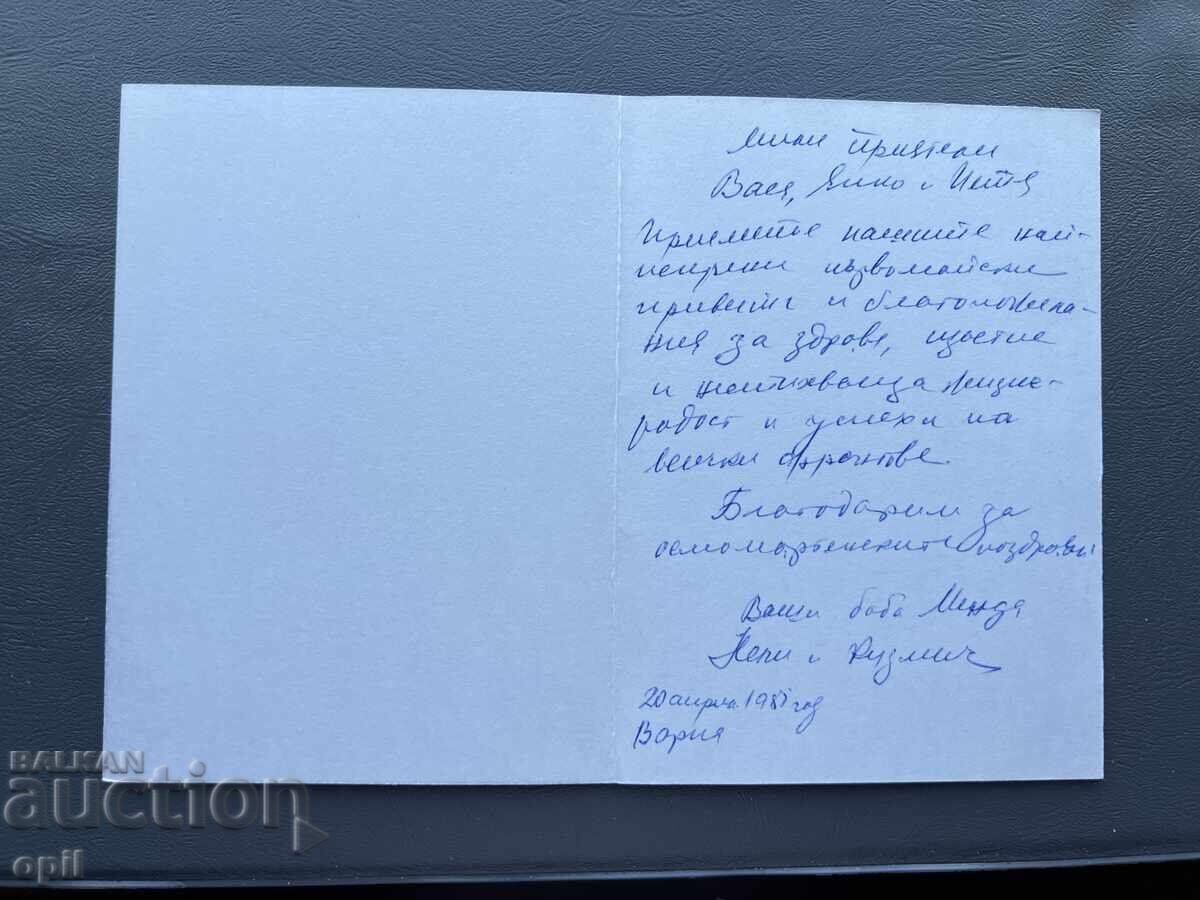 Мили приятели
Вася, Янко и Петя
Приемете нашите най-
искрени първомайски
привети и благопожела-
ния за здраве, щастие
и нестихваща жизне-
радост и успехи на
всички фронтове.
Благодарим за
осмомартенските поздрави!
Ваши баба Менда
Нели и Кузмич
20 април 1987 год
Варна
BALKAN
auction
opil